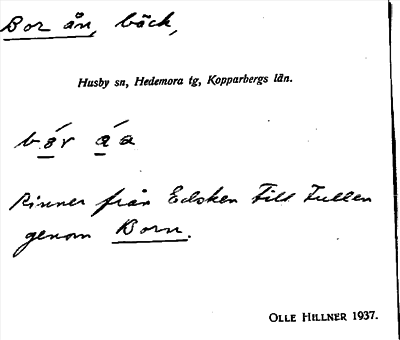 Bor ån, bäck,
Husby sn, Hedemora tg, Kopparbergs län.
bór áa
Rinner från Edsken till Fullen
genom Born.
OLLE HILLNER 1937.